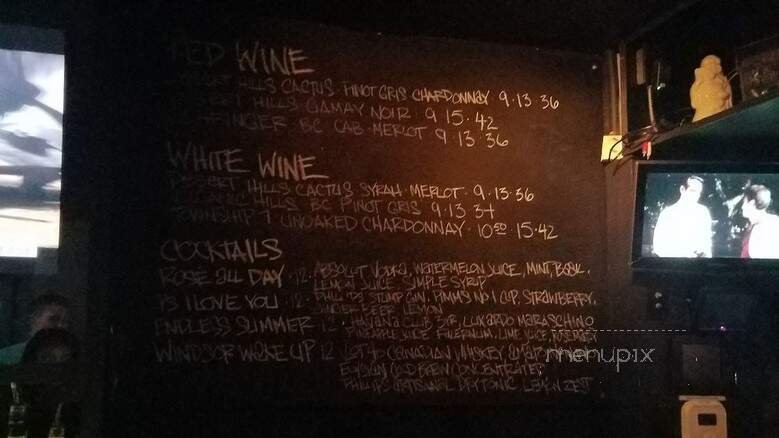 RED WINE
HILLS CACTUS · PINOT GRIS CHARDONNAY 9·13·36
HILLS GAMAY NOIR · 9 15·42
BC CAB·MERLOT 9·13·36
WHITE WINE
DESERT HILLS CACTUS SYRAH·MERLOT · 9·13·36
HILLS BC PINOT GRIS · 9·13 34
TOWNSHIP 7 UNOAKED CHARDONNAY · 10⁵⁰ 15·42
COCKTAILS
ROSÉ ALL DAY · 12 · ABSOLUT VODKA, WATERMELON JUICE, MINT, BASIL,
LEMON JUICE, SIMPLE SYRUP
PS I LOVE YOU · 12 · PHILLIPS STUMP GIN, PIMMS NO 1 CUP, STRAWBERRY,
GINGER BEER, LEMON
ENDLESS SUMMER · 12 · HAVANA CLUB 3YR, LUXARDO MARASCHINO
PINEAPPLE JUICE FALERNUM, LIME JUICE, ROSEMARY
WINDSOR WAKE UP 12 LOT 40 CANADIAN WHISKEY
COLD BREW CONCENTRATE,
PHILLIPS ARTISANAL TONIC LEMON ZEST
menupix